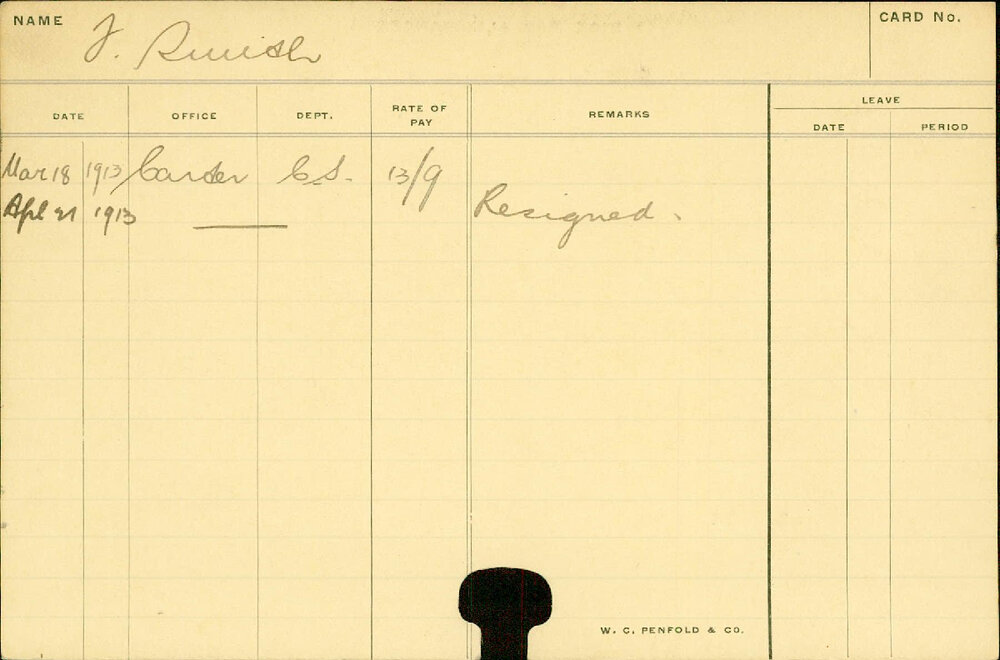 NAME
CARD No.
DATE OFFICE DEPT. RATE OF PAY REMARKS LEAVE
DATE PERIOD
Mar 18 1913 Carter C.S. 13/9
Apl 21 1913 Resigned.
W. C. PENFOLD & CO.